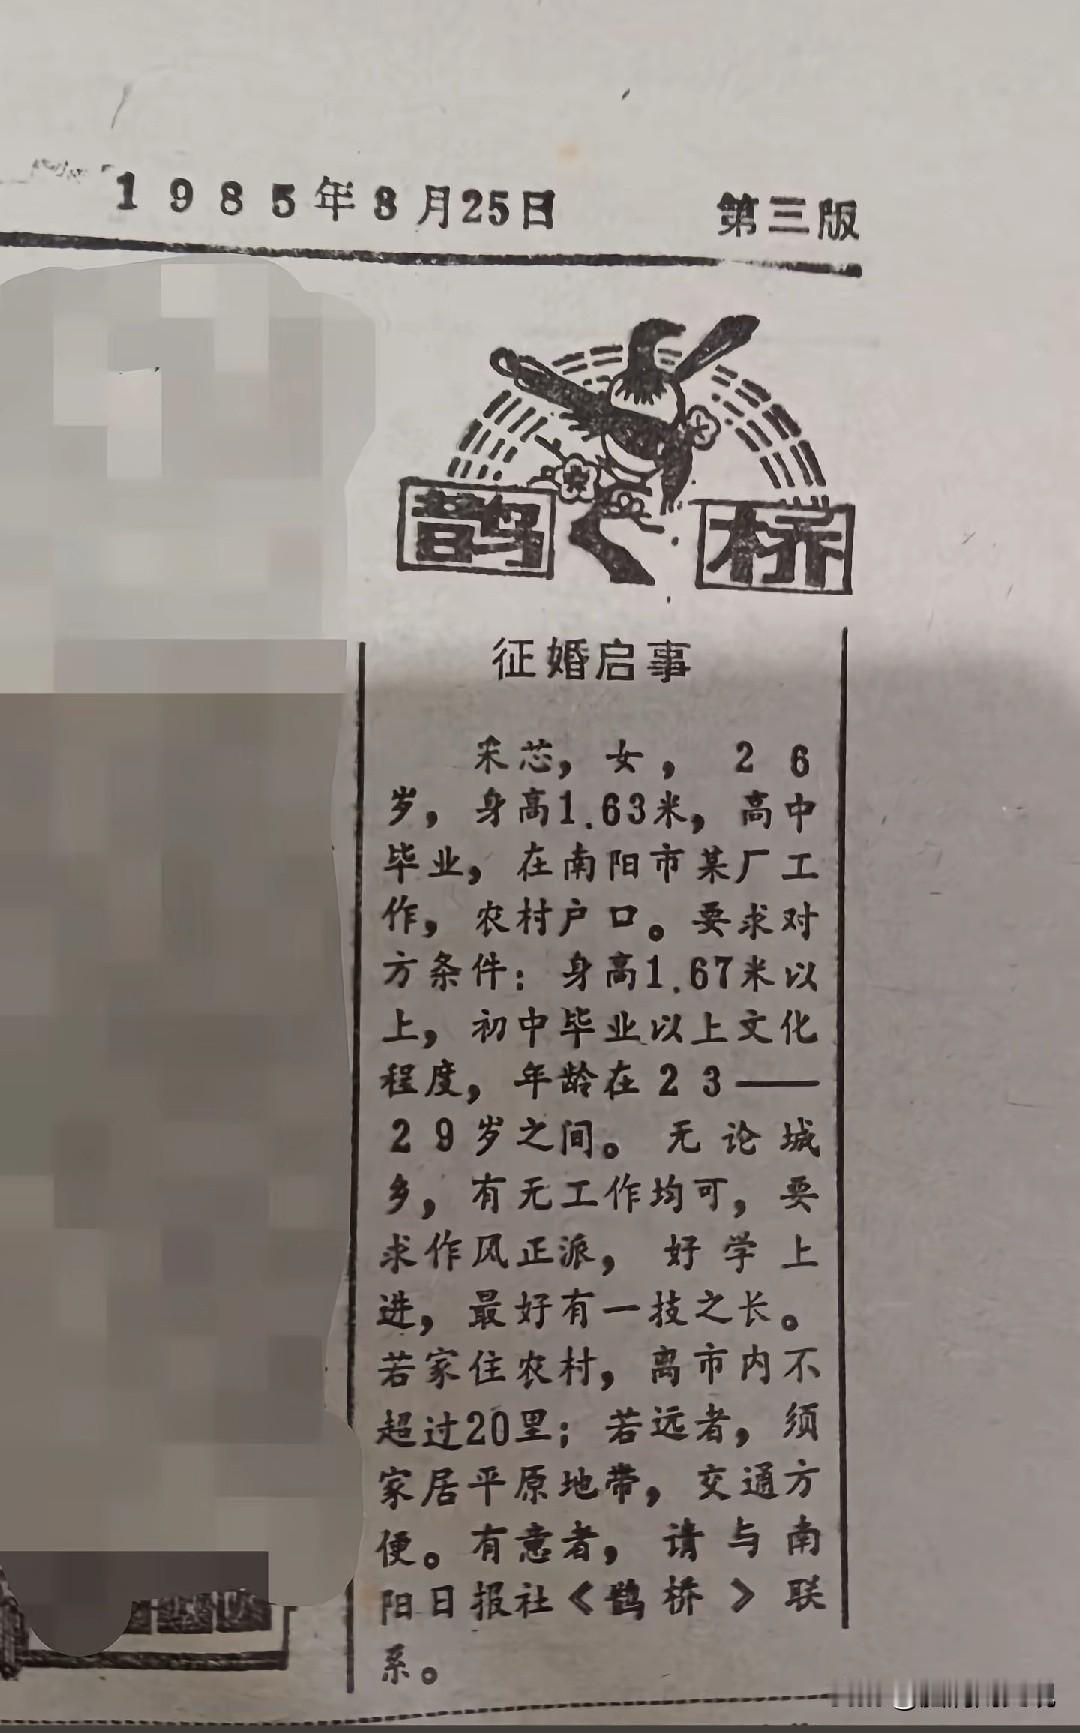 1985年8月25日 第三版
鹊桥
征婚启事
采芯，女，26
岁，身高1.63米，高中
毕业，在南阳市某厂工
作，农村户口。要求对
方条件：身高1.67米以
上，初中毕业以上文化
程度，年龄在23——
29岁之间。无论城
乡，有无工作均可，要
求作风正派，好学上
进，最好有一技之长。
若家住农村，离市内不
超过20里；若远者，须
家居平原地带，交通方
便。有意者，请与南
阳日报社《鹊桥》联
系。